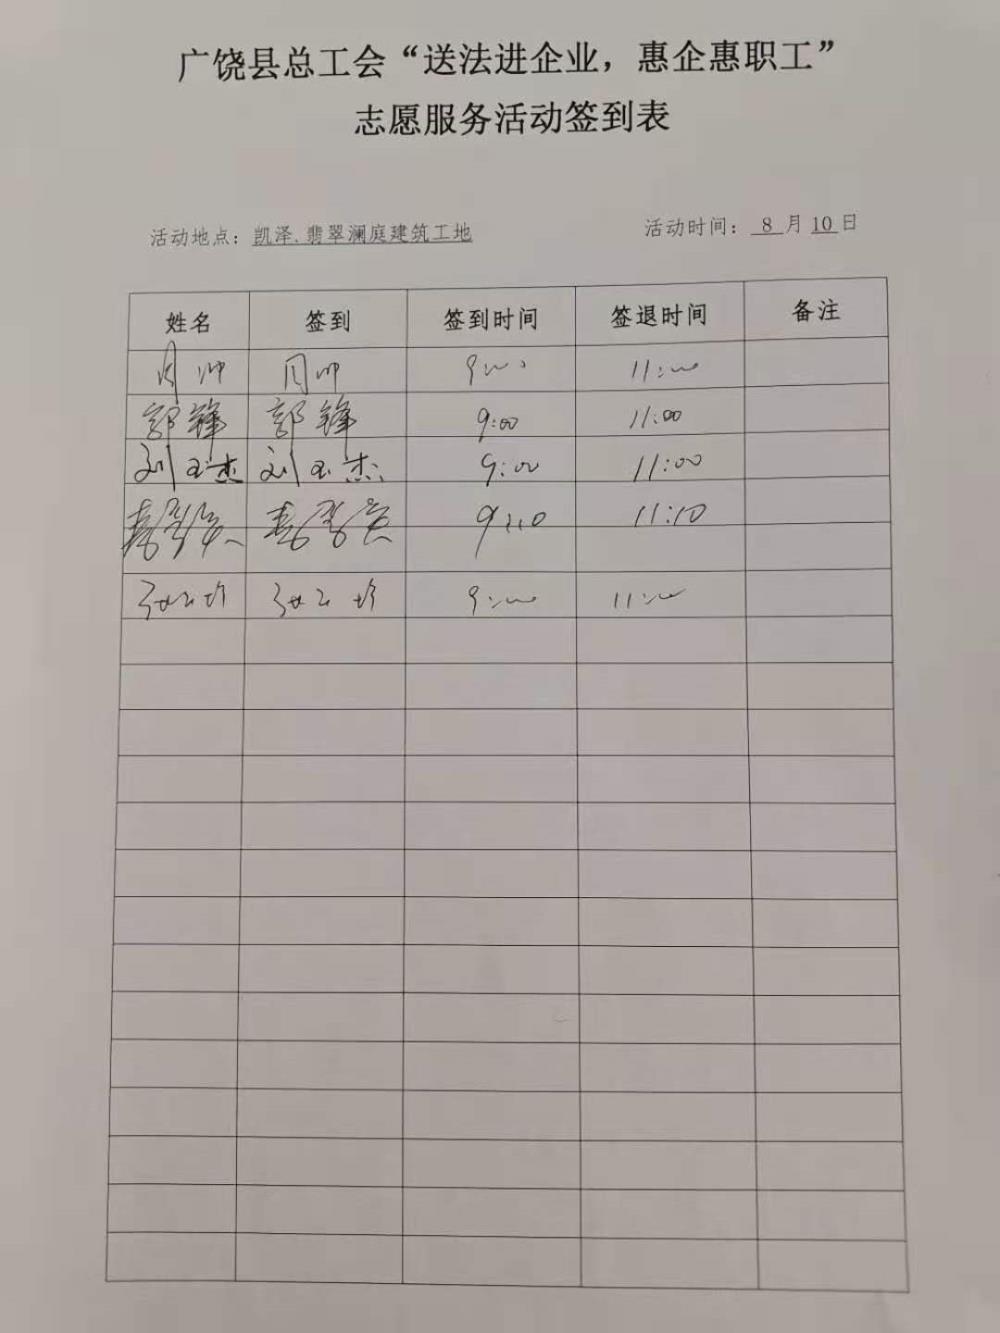 广饶县总工会“送法进企业，惠企惠职工”
志愿服务活动签到表
活动地点：凯泽、翡翠澜庭建筑工地 活动时间：8月10日
姓名 签到 签到时间 签退时间 备注
周帅 周帅 9:00 11:00
郭锋 郭锋 9:00 11:00
刘玉杰 刘玉杰 9:00 11:00
9:10 11:10
9:00 11:00